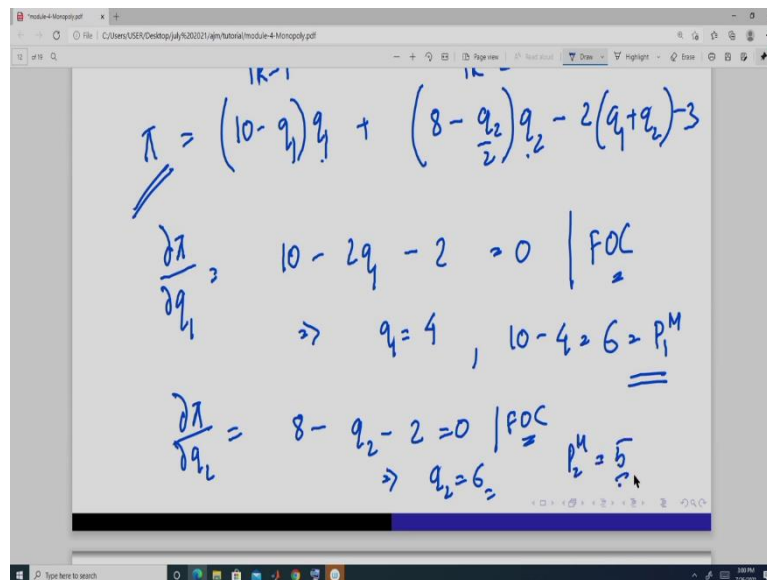 *module-4-Monopoly.pdf
File | C:/Users/USER/Desktop/july%202021/ajm/tutorial/module-4-Monopoly.pdf
12 of 18 Page view Read aloud Draw Highlight Erase
π = (10 - q₁)q₁ + (8 - q₂/2)q₂ - 2(q₁+q₂)-3
∂π/∂q₁ = 10 - 2q₁ - 2 = 0 | FOC
⇒ q₁ = 4 , 10 - 4 = 6 = P₁ᴹ
∂π/∂q₂ = 8 - q₂ - 2 = 0 | FOC
⇒ q₂ = 6 P₂ᴹ = 5
Type here to search
3:00 PM